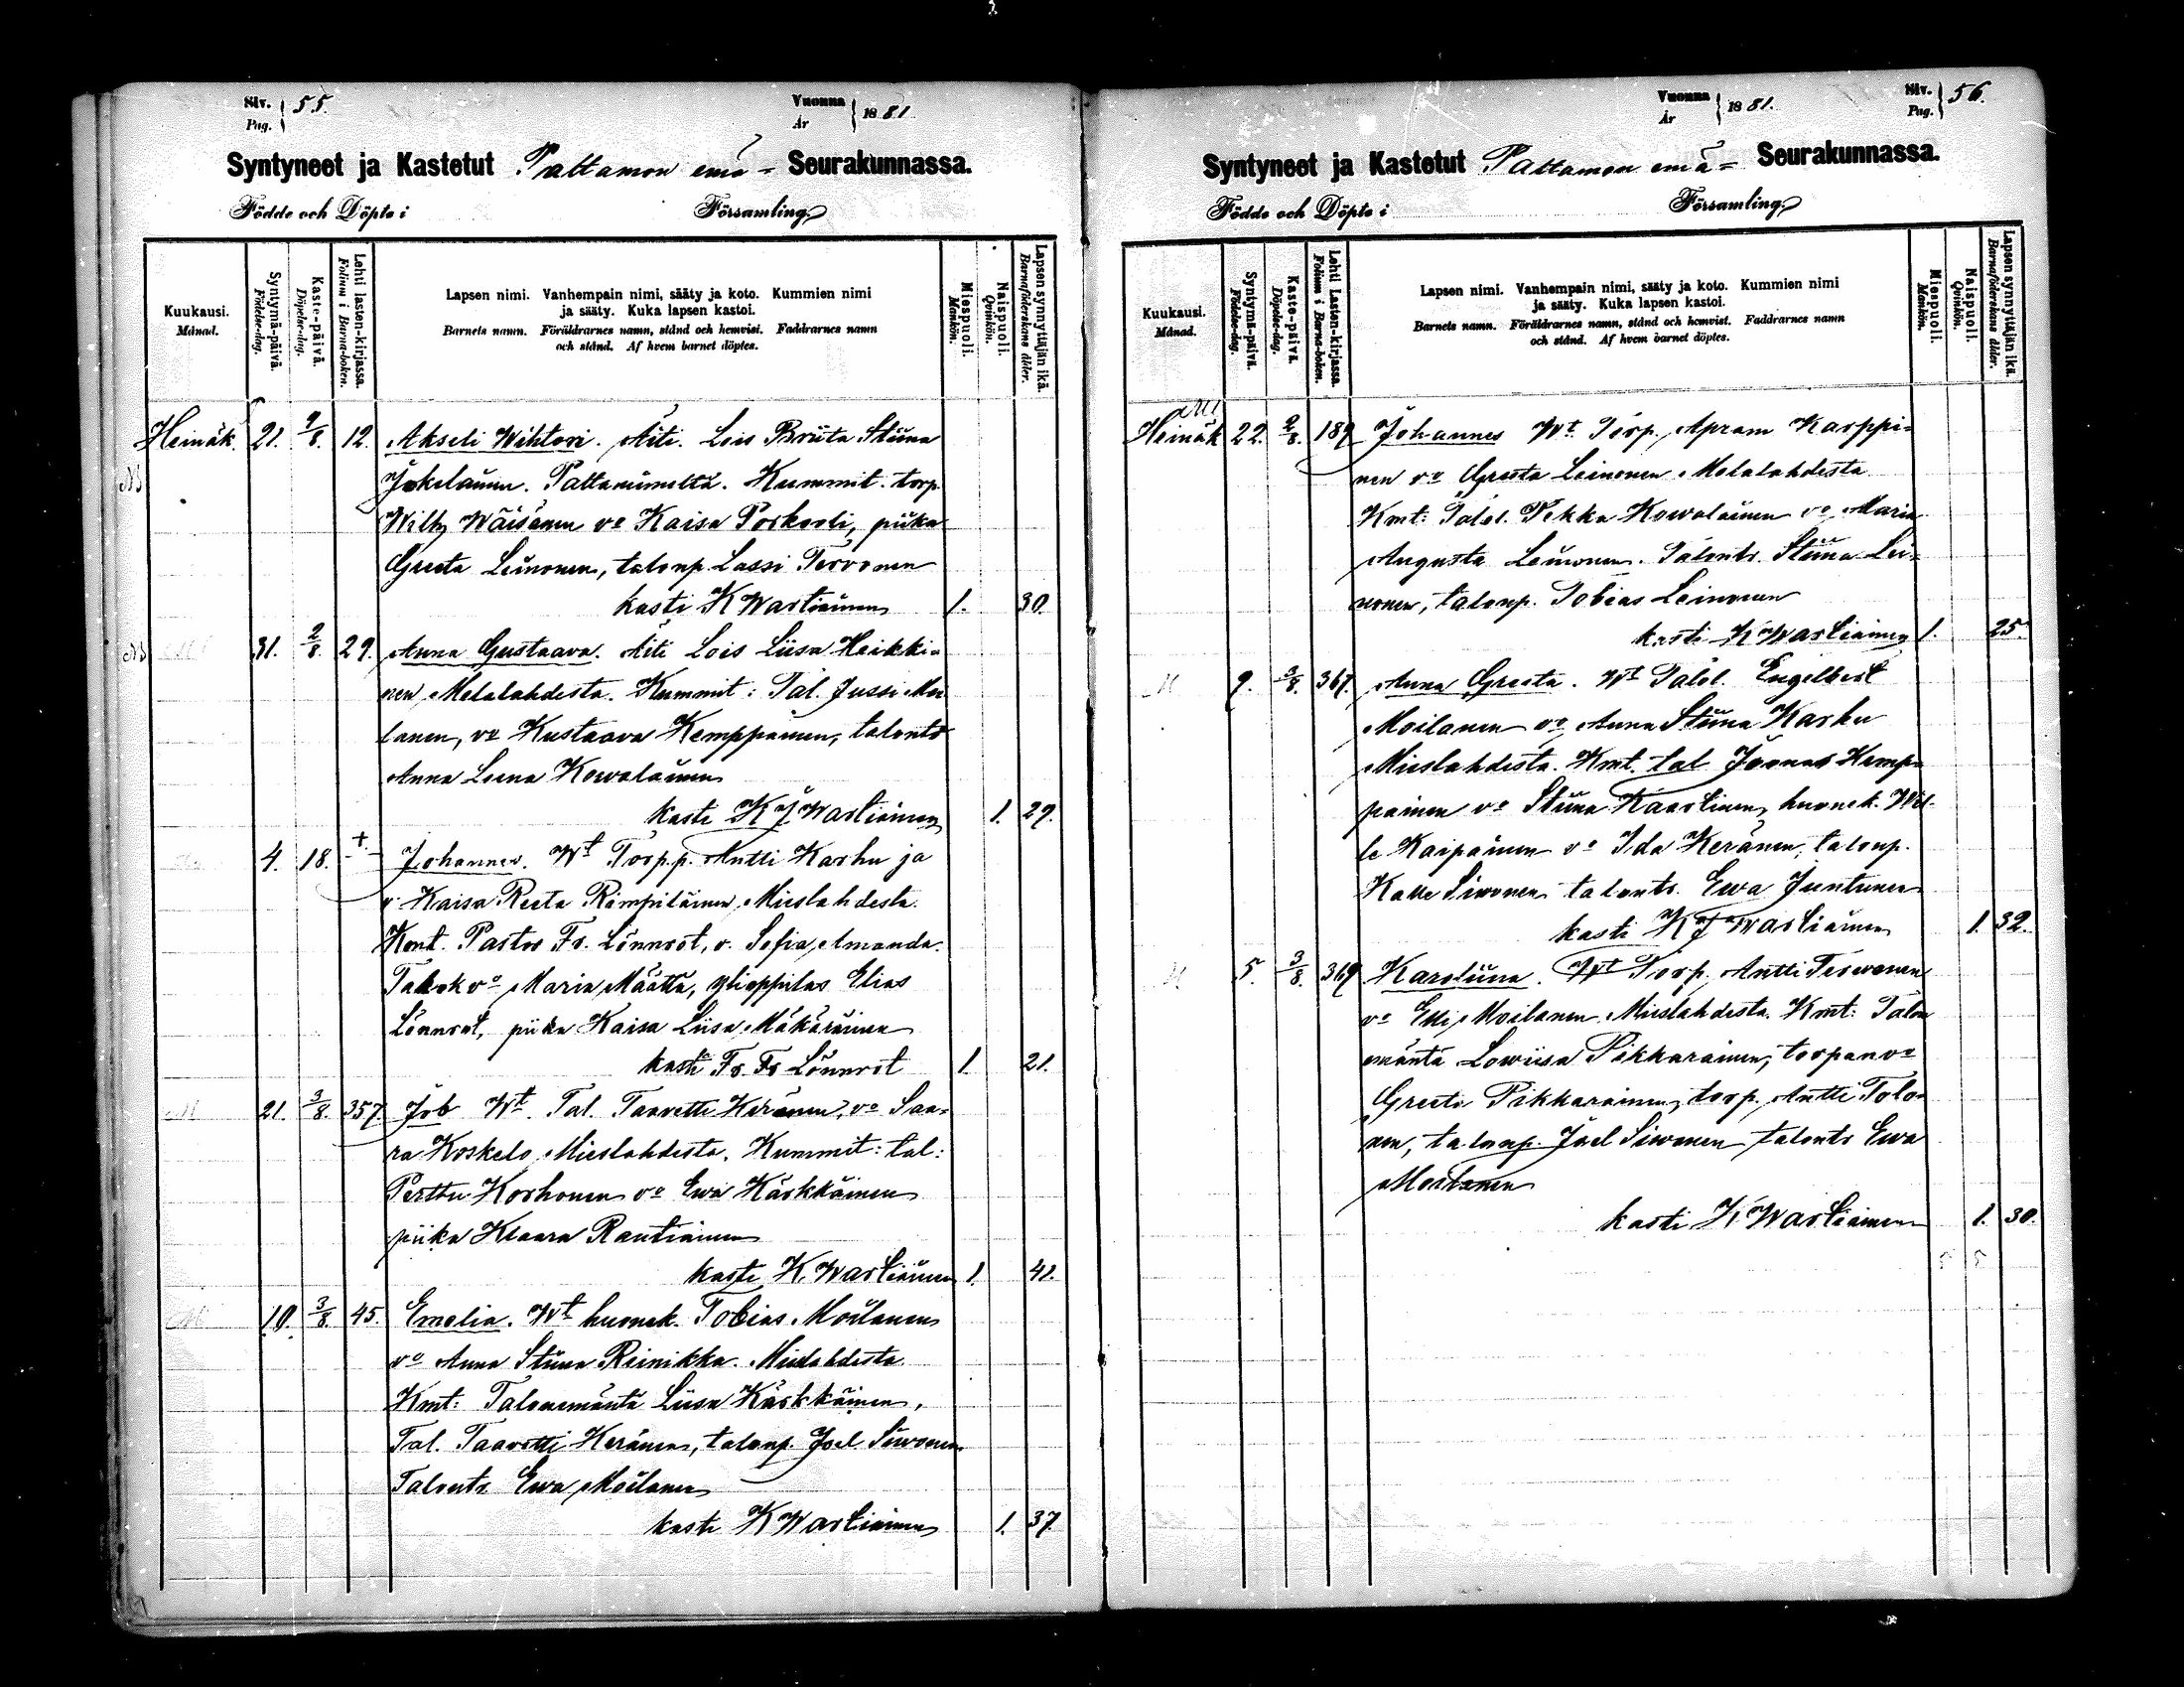 Siv. 55.
Pag.
Vuonna 1881
År
Syntyneet ja Kastetut Paltamon emä- Seurakunnassa.
Födde och Döpte i Församling.
Kuukausi.
Månad.
Syntymä-päivä.
Födelse-dag.
Kaste-päivä.
Döpelse-dag.
Lehti lasten-kirjassa.
Folium i Barna-boken.
Lapsen nimi. Vanhempain nimi, sääty ja koto. Kummien nimi
ja sääty. Kuka lapsen kastoi.
Barnets namn. Föräldrarnes namn, stånd och hemvist. Faddrarnes namn
och stånd. Af hvem barnet döptes.
Miespuoli.
Mankön.
Naispuoli.
Qvinkön.
Lapsen synnyttäjän ikä.
Barnaföderskans ålder.
Heinäk. 21. 12. Akseli Wihtori. Äiti. Lois Briita Stiina
Jokelainen. Kummit. torp.
Wäisänen vo Kaisa, piika
Greeta Leinonen, talonp. Lassi Tervonen
kasti K Wartiainen 1. 30.
31. 2/8. 29. Anna Gustaava. Äiti Lois Liisa Heikki-
nen Melalahdesta. Kummit: Tal. Jussi Moi-
lanen, vo Kustaava Kemppainen, talontr
Anna Leena Kowalainen
kasti K J Wartiainen 1. 29.
4. 18. + Johannes. Wt Torp.p. Antti Karhu ja
v Kaisa Reeta Rimpiläinen, Mieslahdesta.
Kmt. Pastor Fr. Lönnrot, v. Sofia Amanda.
vo Maria Määttä, ylioppilas Elias
Lönnrot, piika Kaisa Liisa Mäkäräinen
kasti Fr. Fr Lönnrot 1. 21.
M 21. 3/8. 357. Job Wt. Tal. Taavetti Keränen, vo Saa-
ra Koskelo Mieslahdesta. Kummit: tal:
Perttu Korhonen vo Ewa Kärkkäinen
piika Klaara Rautiainen
kasti K. Wartiainen 1. 41.
M 10. 3/8. 45. Emelia. Wt huonek. Tobias Moilanen
vo Anna Stiina Reinikka. Mieslahdesta
Kmt: Talonemäntä Liisa Kärkkäinen,
Tal. Taavetti Keränen, talonp. Joel Siwonen
Talontr. Ewa Moilanen
kasti K Wartiainen 1. 37.
Vuonna 1881.
År
Siv. 56.
Pag.
Syntyneet ja Kastetut Paltamon emä- Seurakunnassa.
Födde och Döpte i Församling.
Kuukausi.
Månad.
Syntymä-päivä.
Födelse-dag.
Kaste-päivä.
Döpelse-dag.
Lehti Lasten-kirjassa.
Folium i Barna-boken.
Lapsen nimi. Vanhempain nimi, sääty ja koto. Kummien nimi
ja sääty. Kuka lapsen kastoi.
Barnets namn. Föräldrarnes namn, stånd och hemvist. Faddrarnes namn
och stånd. Af hvem barnet döptes.
Miespuoli.
Mankön.
Naispuoli.
Qvinkön.
Lapsen synnyttäjän ikä.
Barnaföderskans ålder.
Heinäk 22. 2/8. 189 Johannes Wt. Torp. Apram Karppi-
nen vo Greeta Leinonen Melalahdesta
Kmt: Talol. Pekka Kowalainen vo Maria
Augusta Leinonen. Talontr. Stiina Lei-
nonen, talonp. Tobias Leinonen
kasti K Wartiainen 1. 25.
M 9. 3/8. 367. Anna Greeta. Wt Talol. Engelbert
Moilanen vo Anna Stiina Karhu
Mieslahdesta. Kmt. tal Joonas Kemp-
painen vo Stiina Kaartinen, huonek. Wil-
le Kaipainen vo Ida Keränen, talonp.
Kalle Siwonen talontr. Ewa Juntunen
kasti K J Wartiainen 1. 32.
M 5. 3/8. 369 Karoliina. Wt Torp. Antti Terwonen
vo Elli Moilanen Mieslahdesta. Kmt: Talon
emäntä Lowiisa Pikkarainen, torpan vo
Greeta Pikkarainen, torp. Antti Tolo-
nen, talonp. Joel Siwonen talontr Ewa
Moilanen
kasti K Wartiainen 1. 30.
5 5